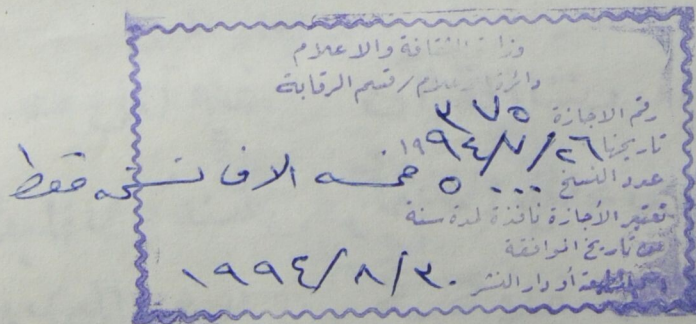 وزارة الثقافة والاعلام
دائرة الاعلام / قسم الرقابة
رقم الاجازة ٣٧٥
تاريخها ٢٦/٧/١٩٩٤
عدد النسخ ٥٠٠٠ خمسه الاف نسخه فقط
تعتبر الأجازة نافذة لمدة سنة
من تاريخ الموافقة
أو دار النشر ٣٠/٨/١٩٩٤